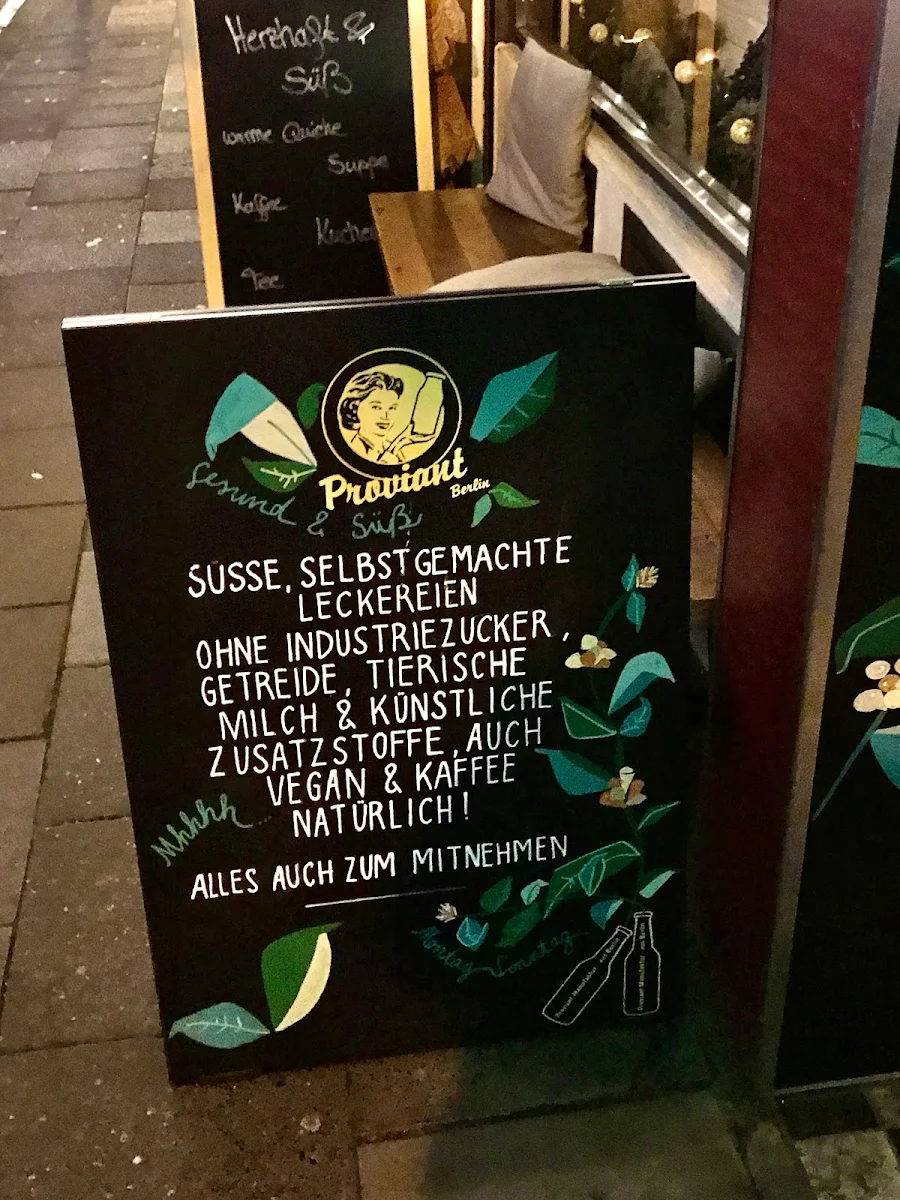 Herzhaft &
Süß
warme Quiche
Suppe
Kaffee
Kuchen
Tee
Proviant
Berlin
Gesund & Süß
SÜSSE, SELBSTGEMACHTE
LECKEREIEN
OHNE INDUSTRIEZUCKER,
GETREIDE, TIERISCHE
MILCH & KÜNSTLICHE
ZUSATZSTOFFE, AUCH
VEGAN & KAFFEE
NATÜRLICH!
Mhhhh...
ALLES AUCH ZUM MITNEHMEN
Montag-Sonntag
Proviant Manufaktur aus Berlin
Proviant Manufaktur aus Berlin